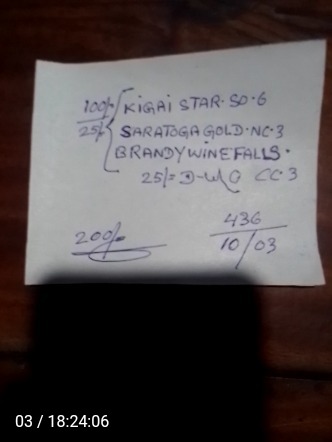 100/- KIGAI STAR. SD.6
25/- SARATOGA GOLD.NC.3
BRANDYWINEFALLS.
25/= D-W/C CC.3
200/-
436
10/03
03 / 18:24:06